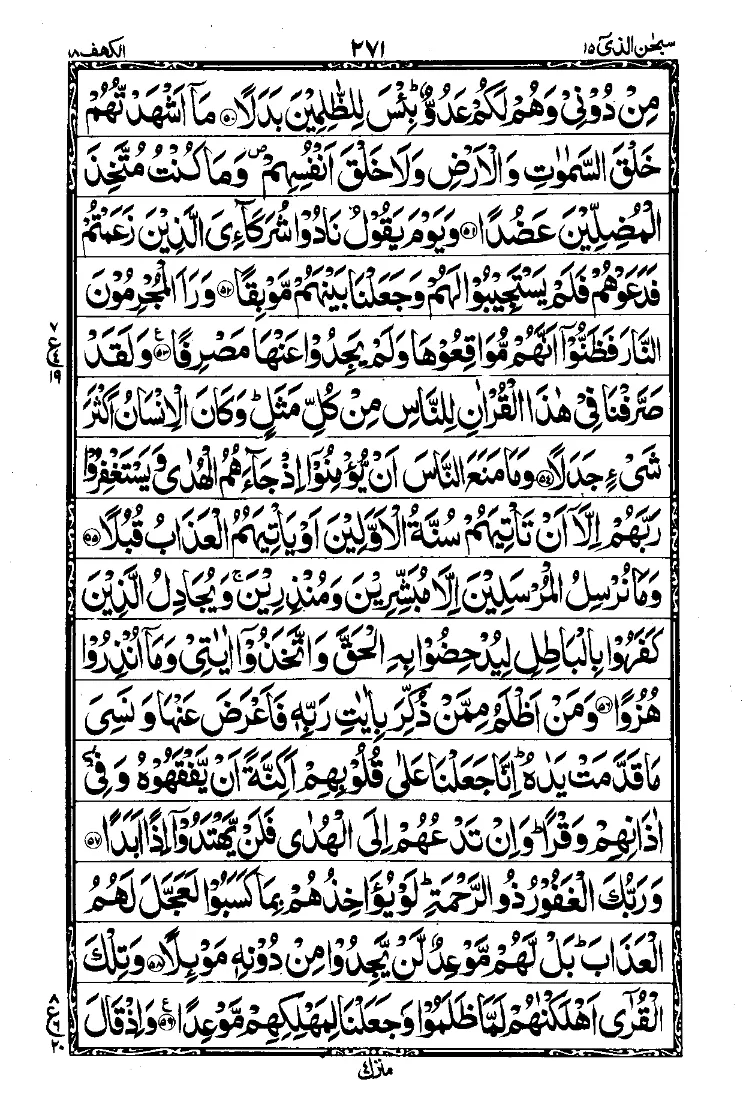 سبحٰن الذی ١٥ ٢٧١ الکهف ١٨
مِنْ دُوْنِیْ وَهُمْ لَكُمْ عَدُوٌّ ؕ بِئْسَ لِلظّٰلِمِیْنَ بَدَلًا ﴿٥٠﴾ مَاۤ اَشْهَدْتُّهُمْ
خَلْقَ السَّمٰوٰتِ وَالْاَرْضِ وَلَا خَلْقَ اَنْفُسِهِمْ ۪ وَمَا كُنْتُ مُتَّخِذَ
الْمُضِلِّیْنَ عَضُدًا ﴿٥١﴾ وَیَوْمَ یَقُوْلُ نَادُوْا شُرَكَآءِیَ الَّذِیْنَ زَعَمْتُمْ
فَدَعَوْهُمْ فَلَمْ یَسْتَجِیْبُوْا لَهُمْ وَجَعَلْنَا بَیْنَهُمْ مَّوْبِقًا ﴿٥٢﴾ وَرَاَ الْمُجْرِمُوْنَ
النَّارَ فَظَنُّوْۤا اَنَّهُمْ مُّوَاقِعُوْهَا وَلَمْ یَجِدُوْا عَنْهَا مَصْرِفًا ﴿٥٣﴾ ع وَلَقَدْ
٧ ع ٤ ١٩
صَرَّفْنَا فِیْ هٰذَا الْقُرْاٰنِ لِلنَّاسِ مِنْ كُلِّ مَثَلٍ ؕ وَكَانَ الْاِنْسَانُ اَكْثَرَ
شَیْءٍ جَدَلًا ﴿٥٤﴾ وَمَا مَنَعَ النَّاسَ اَنْ یُّؤْمِنُوْۤا اِذْ جَآءَهُمُ الْهُدٰی وَیَسْتَغْفِرُوْا
رَبَّهُمْ اِلَّاۤ اَنْ تَاْتِیَهُمْ سُنَّةُ الْاَوَّلِیْنَ اَوْ یَاْتِیَهُمُ الْعَذَابُ قُبُلًا ﴿٥٥﴾
وَمَا نُرْسِلُ الْمُرْسَلِیْنَ اِلَّا مُبَشِّرِیْنَ وَمُنْذِرِیْنَ ۚ وَیُجَادِلُ الَّذِیْنَ
كَفَرُوْا بِالْبَاطِلِ لِیُدْحِضُوْا بِهِ الْحَقَّ وَاتَّخَذُوْۤا اٰیٰتِیْ وَمَاۤ اُنْذِرُوْا
هُزُوًا ﴿٥٦﴾ وَمَنْ اَظْلَمُ مِمَّنْ ذُكِّرَ بِاٰیٰتِ رَبِّهٖ فَاَعْرَضَ عَنْهَا وَنَسِیَ
مَا قَدَّمَتْ یَدٰهُ ؕ اِنَّا جَعَلْنَا عَلٰی قُلُوْبِهِمْ اَكِنَّةً اَنْ یَّفْقَهُوْهُ وَفِیْۤ
اٰذَانِهِمْ وَقْرًا ؕ وَاِنْ تَدْعُهُمْ اِلَی الْهُدٰی فَلَنْ یَّهْتَدُوْۤا اِذًا اَبَدًا ﴿٥٧﴾
وَرَبُّكَ الْغَفُوْرُ ذُو الرَّحْمَةِ ؕ لَوْ یُؤَاخِذُهُمْ بِمَا كَسَبُوْا لَعَجَّلَ لَهُمُ
الْعَذَابَ ؕ بَلْ لَّهُمْ مَّوْعِدٌ لَّنْ یَّجِدُوْا مِنْ دُوْنِهٖ مَوْئِلًا ﴿٥٨﴾ وَتِلْكَ
الْقُرٰۤی اَهْلَكْنٰهُمْ لَمَّا ظَلَمُوْا وَجَعَلْنَا لِمَهْلِكِهِمْ مَّوْعِدًا ﴿٥٩﴾ ع وَاِذْ قَالَ
٨ ع ٦ ٢٠
منزل ٤